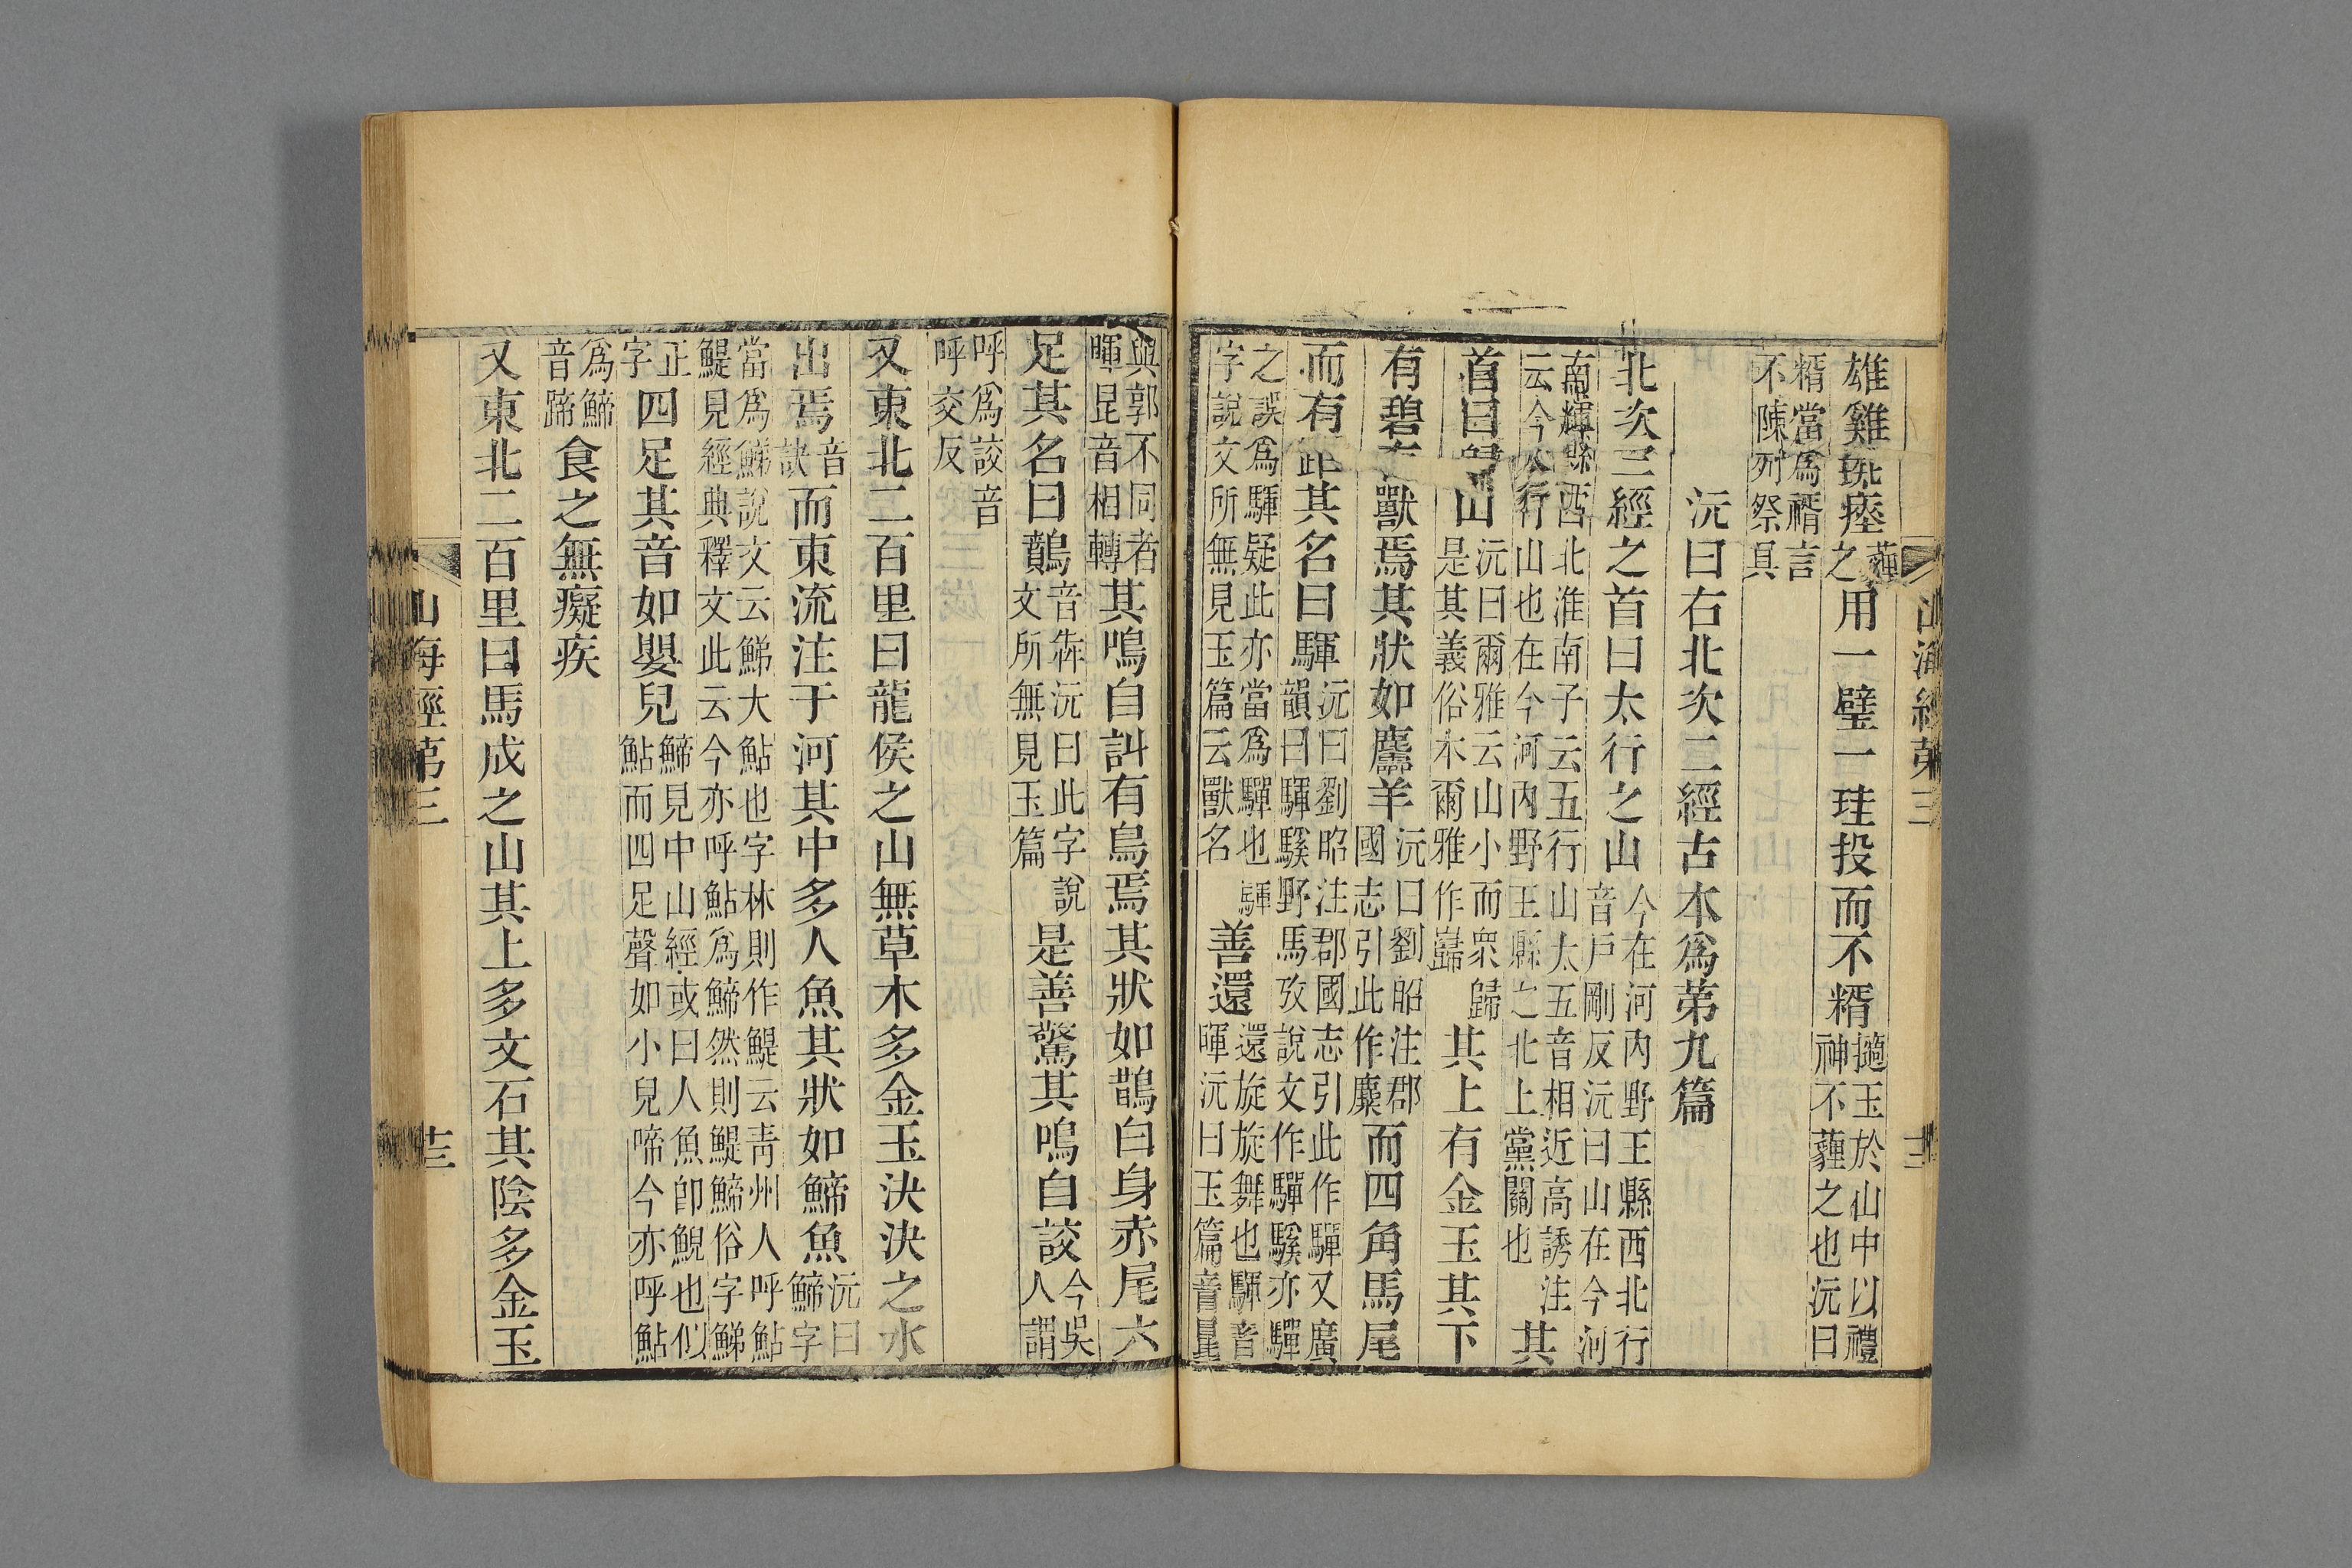 雄雞彘瘞薶之用一璧一珪投而不糈擿玉於山中以禮神不薶之也沅曰
糈當爲稰言不陳列祭具
沅曰右北次二經古本爲苐九篇
北次三經之首曰太行之山今在河內野王縣西北行音戶剛反沅曰山在今河
南輝縣西北淮南子云五行山太五音相近高誘注云今太行山也在今河內野王縣之北上黨關也其
首曰歸山沅曰爾雅云山小而眾歸是其義俗本爾雅作巋其上有金玉其下
有碧有獸焉其狀如麢羊沅曰劉昭注郡國志引此作麋而四角馬尾
而有距其名曰驒沅曰劉昭注郡國志引此作驒又廣韻曰驒騱野馬攷說文作驒騱亦驒
之誤爲㺑疑此亦當爲驒也㺑字說文所無見玉篇云獸名善還還旋旋舞也㺑音暉沅曰玉篇音暈
與郭不同者暉昆音相轉其鳴自訆有鳥焉其狀如鵲白身赤尾六
足其名曰鷾音犇沅曰此字說文所無見玉篇是善驚其鳴自詨今吳人謂
呼爲詨音呼交反
又東北二百里曰龍侯之山無草木多金玉決決之水
出焉音訣而東流注于河其中多人魚其狀如䱱魚沅曰䱱字
當爲鮷說文云鮷大鮎也字林則作鯷云青州人呼鮎鯷見經典釋文此云今亦呼鮎爲䱱然則鯷䱱俗字鮷
正字四足其音如嬰兒䱱見中山經或曰人魚卽鯢也似鮎而四足聲如小兒啼今亦呼鮎
爲䱱音蹄食之無癡疾
又東北二百里曰馬成之山其上多文石其陰多金玉
山海經第三